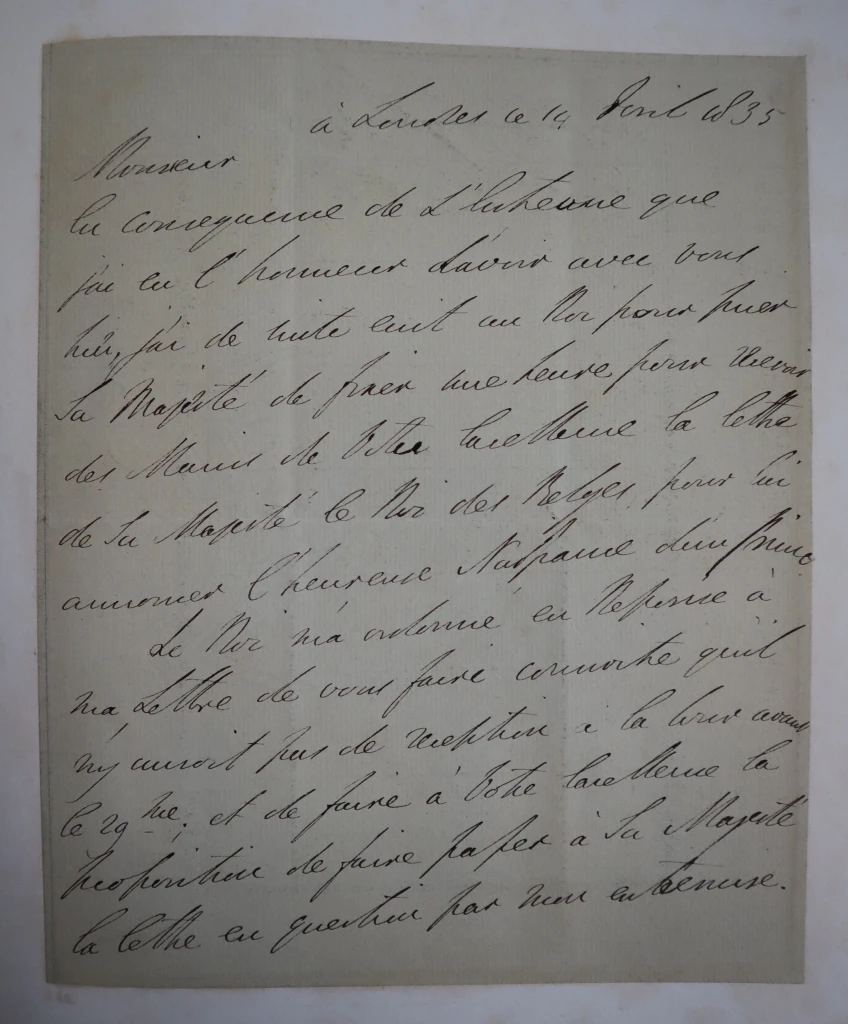 à Londres ce 14 Avril 1835
Monsieur
En consequence de L'Entrevue que
j'ai eu l'honneur d'avoir avec vous
hier, j'ai de suite ecrit au Roi pour prier
Sa Majesté de fixer une heure pour recevoir
des Mains de Votre Excellence la lettre
de Sa Majesté le Roi des Belges pour lui
annoncer l'heureuse Naissance d'un Prince
Le Roi m'a ordonné en Reponse à
ma Lettre de vous faire connoitre qu'il
n'y auroit pas de reception à la Cour avant
le 29me; et de faire à Votre Excellence la
proposition de faire passer à Sa Majesté
la lettre en question par mon entremise.